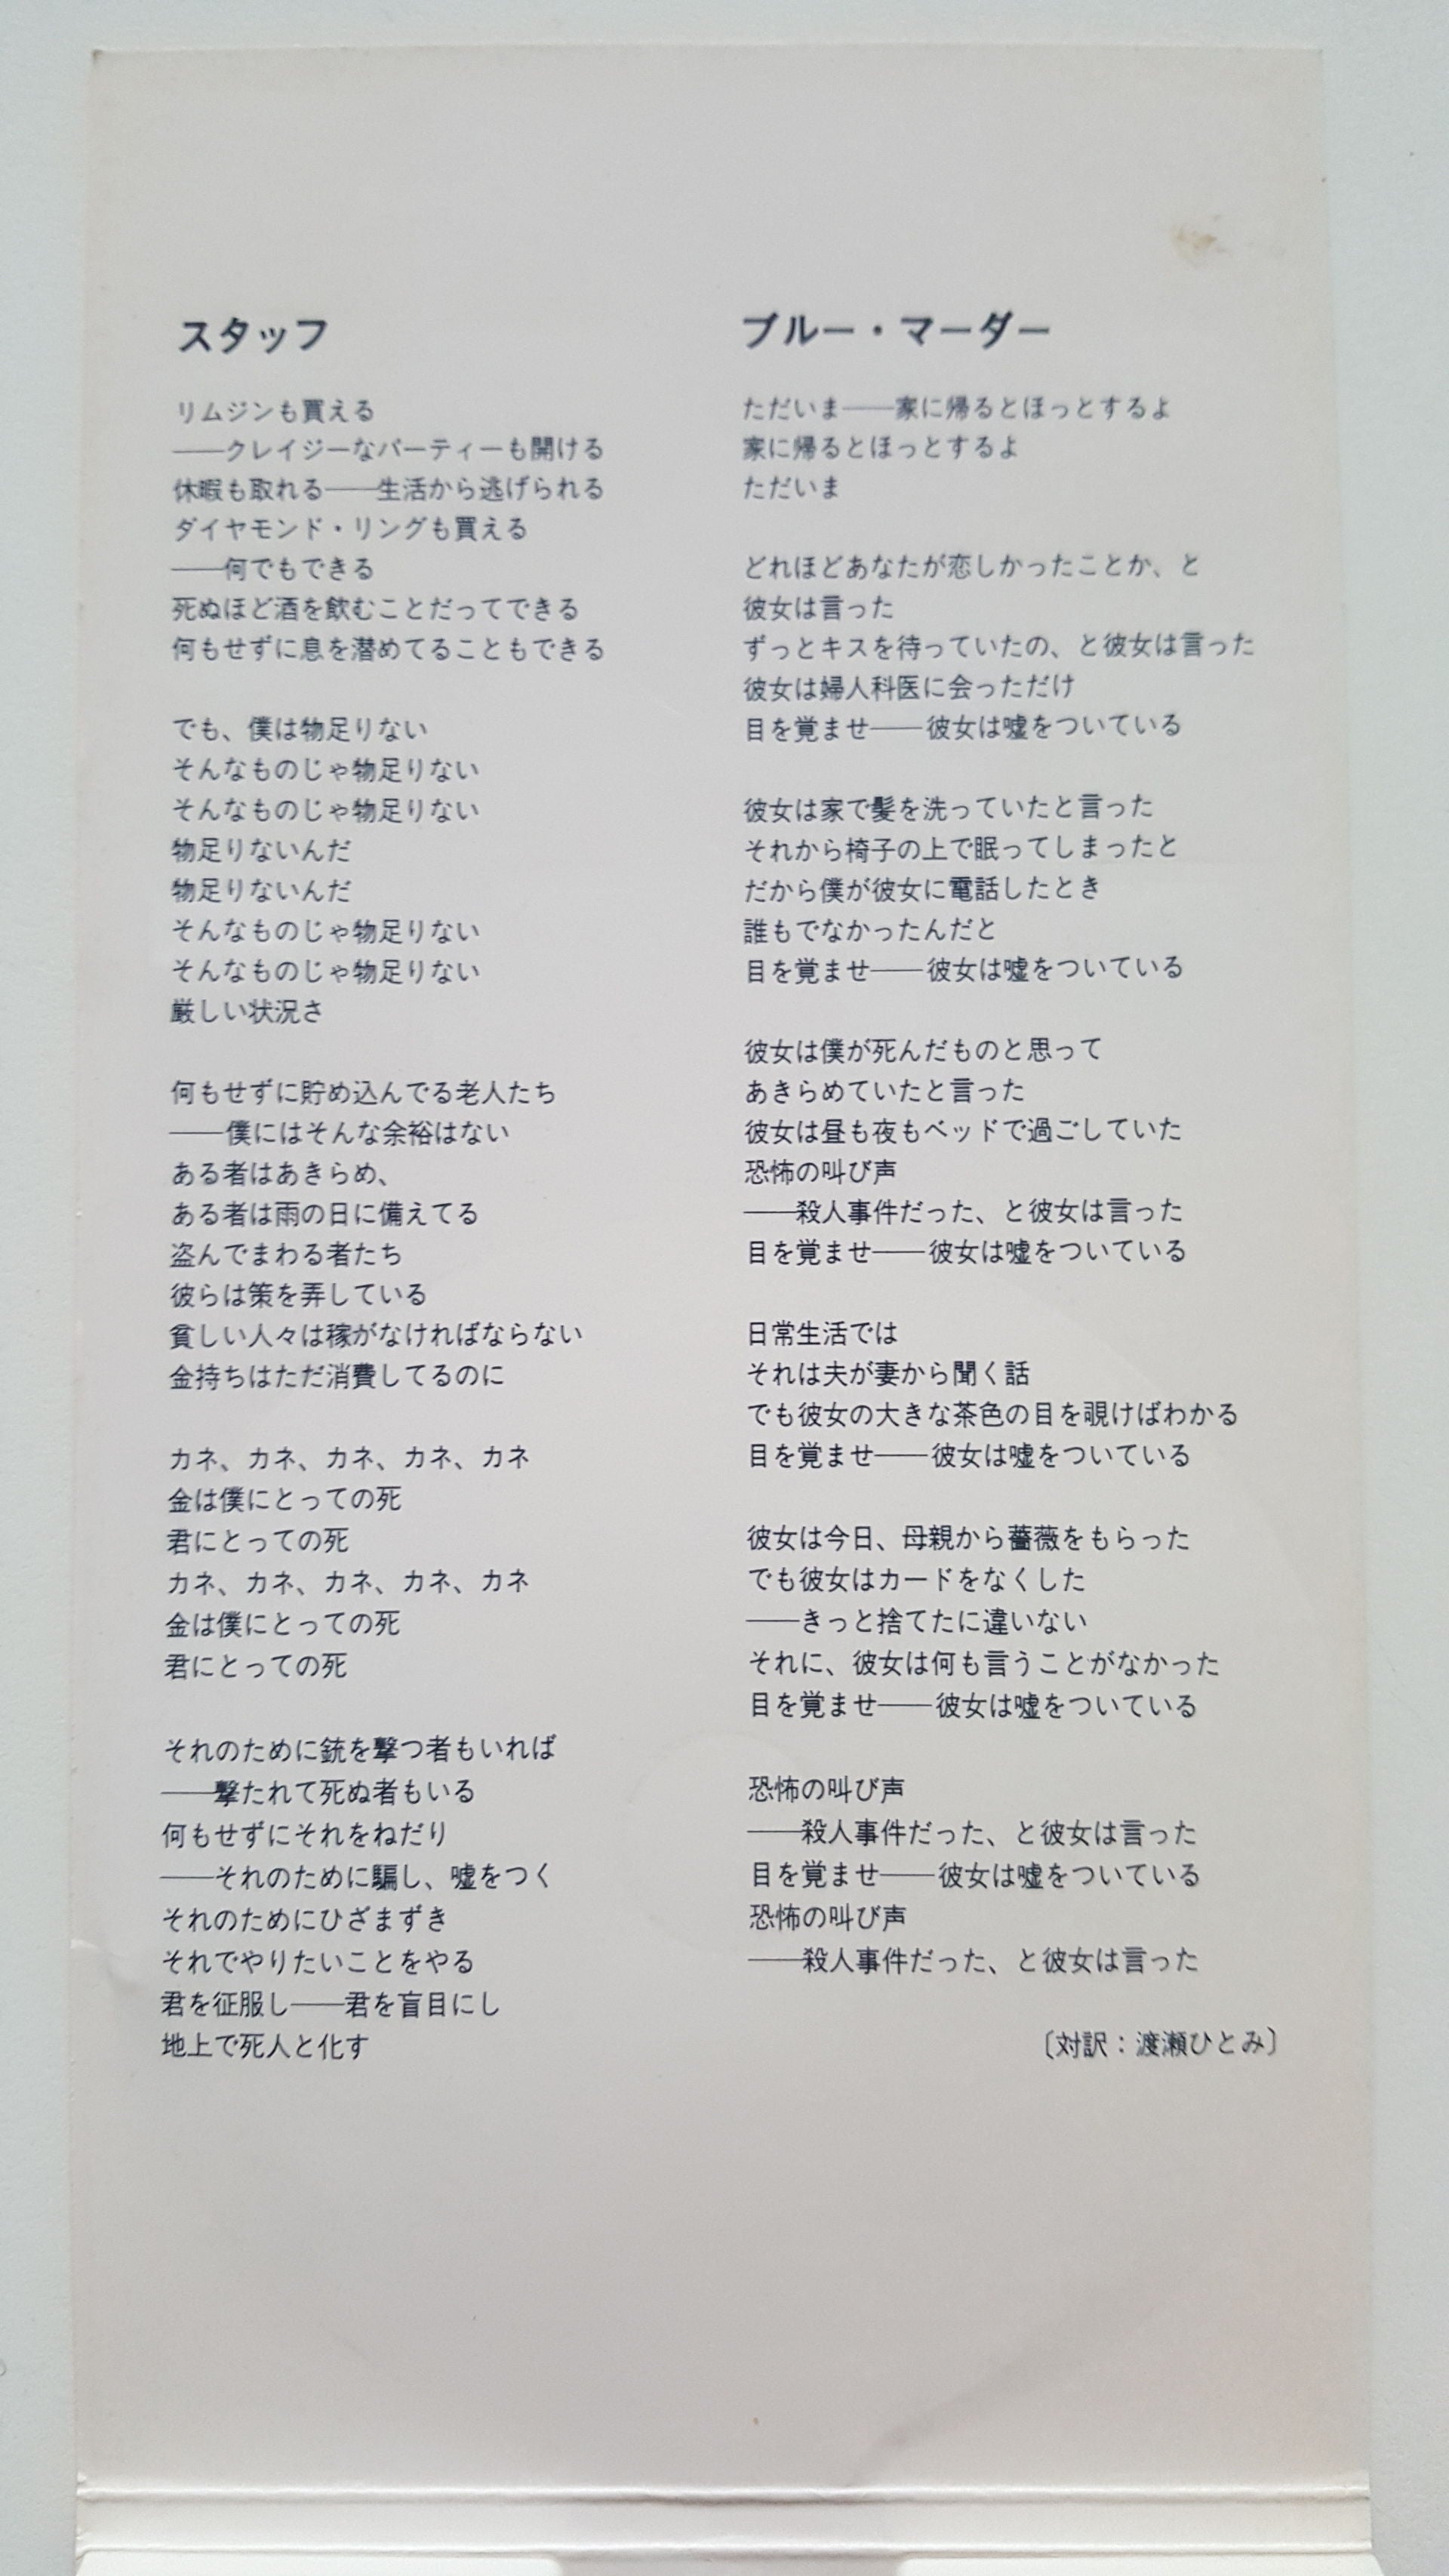 スタッフ
リムジンも買える
——クレイジーなパーティーも開ける
休暇も取れる——生活から逃げられる
ダイヤモンド・リングも買える
——何でもできる
死ぬほど酒を飲むことだってできる
何もせずに息を潜めてることもできる
でも、僕は物足りない
そんなものじゃ物足りない
そんなものじゃ物足りない
物足りないんだ
物足りないんだ
そんなものじゃ物足りない
そんなものじゃ物足りない
厳しい状況さ
何もせずに貯め込んでる老人たち
——僕にはそんな余裕はない
ある者はあきらめ、
ある者は雨の日に備えてる
盗んでまわる者たち
彼らは策を弄している
貧しい人々は稼がなければならない
金持ちはただ消費してるのに
カネ、カネ、カネ、カネ、カネ
金は僕にとっての死
君にとっての死
カネ、カネ、カネ、カネ、カネ
金は僕にとっての死
君にとっての死
それのために銃を撃つ者もいれば
——撃たれて死ぬ者もいる
何もせずにそれをねだり
——それのために騙し、嘘をつく
それのためにひざまずき
それでやりたいことをやる
君を征服し——君を盲目にし
地上で死人と化す
ブルー・マーダー
ただいま——家に帰るとほっとするよ
家に帰るとほっとするよ
ただいま
どれほどあなたが恋しかったことか、と
彼女は言った
ずっとキスを待っていたの、と彼女は言った
彼女は婦人科医に会っただけ
目を覚ませ——彼女は嘘をついている
彼女は家で髪を洗っていたと言った
それから椅子の上で眠ってしまったと
だから僕が彼女に電話したとき
誰もでなかったんだと
目を覚ませ——彼女は嘘をついている
彼女は僕が死んだものと思って
あきらめていたと言った
彼女は昼も夜もベッドで過ごしていた
恐怖の叫び声
——殺人事件だった、と彼女は言った
目を覚ませ——彼女は嘘をついている
日常生活では
それは夫が妻から聞く話
でも彼女の大きな茶色の目を覗けばわかる
目を覚ませ——彼女は嘘をついている
彼女は今日、母親から薔薇をもらった
でも彼女はカードをなくした
——きっと捨てたに違いない
それに、彼女は何も言うことがなかった
目を覚ませ——彼女は嘘をついている
恐怖の叫び声
——殺人事件だった、と彼女は言った
目を覚ませ——彼女は嘘をついている
恐怖の叫び声
——殺人事件だった、と彼女は言った
〔対訳：渡瀬ひとみ〕